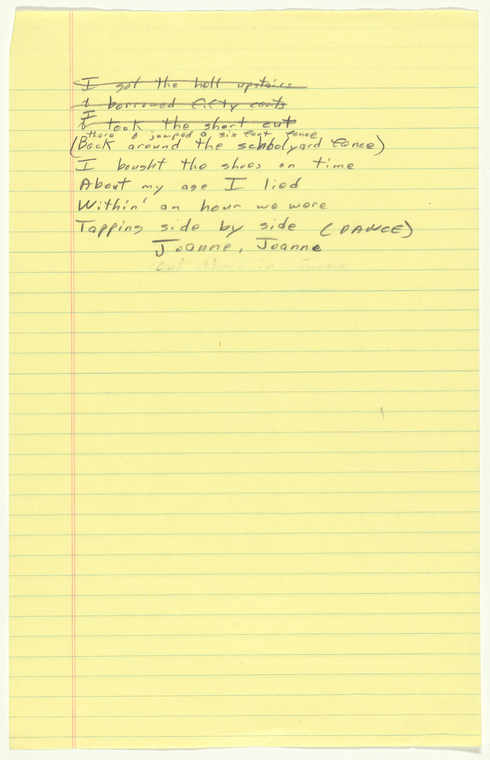 I got the hell upstairs
I borrowed fifty cents
I took the short cut
there & jumped a six foot fence
(Back around the schoolyard fence)
I bought the shoes on time
About my age I lied
Within' an hour we were
Tapping side by side (DANCE)
Joanne, Joanne
out